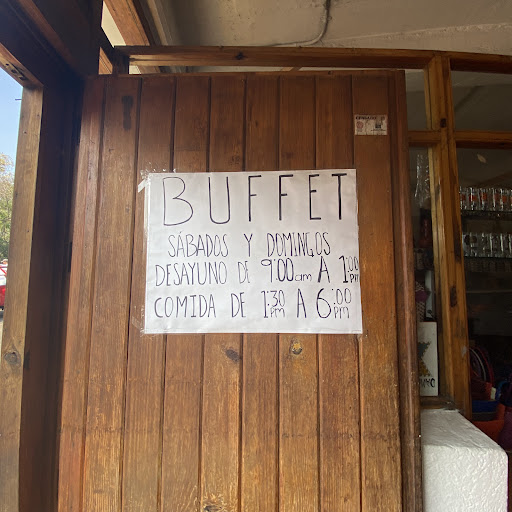 BUFFET
SÁBADOS Y DOMINGOS
DESAYUNO DE 9:00am A 1:00pm
COMIDA DE 1:30pm A 6:00pm